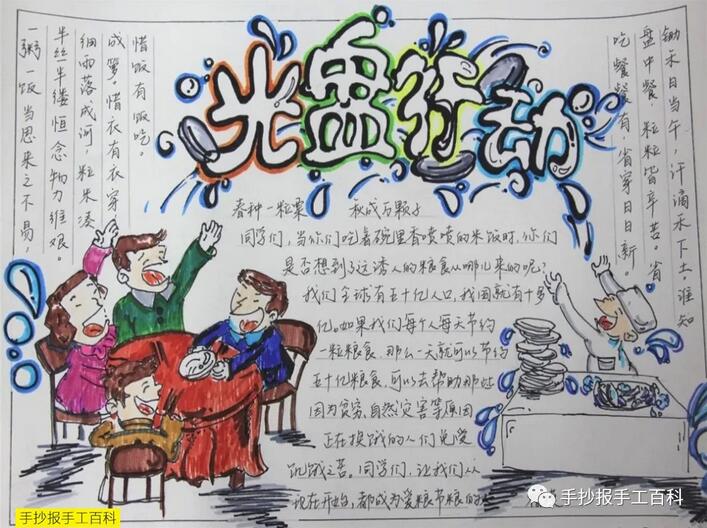 光盘行动
一粥一饭当思来之不易，
半丝半缕恒念物力维艰。
细雨落成河，粒米凑
成箩，惜衣有衣穿
惜饭有饭吃。
锄禾日当午，汗滴禾下土谁知
盘中餐，粒粒皆辛苦。省
吃餐餐有，省穿日日新。
春种一粒粟 秋成万颗子
同学们，当你们吃着碗里香喷喷的米饭时，你们
是否想到了这诱人的粮食从哪儿来的呢？
我们全球有五十亿人口，我国就有十多
亿。如果我们每个人每天节约
一粒粮食，那么一天就可以节约
五十亿粮食，可以去帮助那些
因为贫穷，自然灾害等原因
正在挨饿的人们免受
饥饿之苦。同学们，让我们从
现在开始，都成为爱粮节粮的
手抄报手工百科
手抄报手工百科